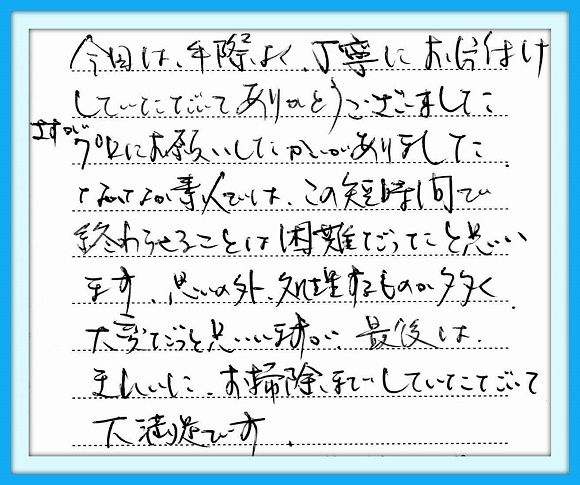 今回は、手際よく、丁寧にお片付け
していただいてありがとうございました
さすが
プロにお願いしたかいがありました
なかなか素人では、この短時間で
終わらせることは困難だったと思い
ます、思いの外、処理するものが多く
大変だったと思いいますが、最後は
きれいに、お掃除までしていただいて
大満足です.